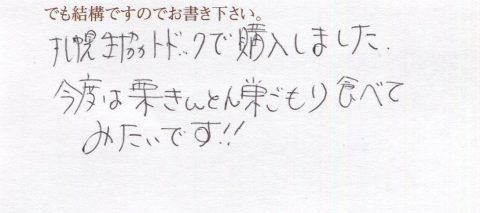 でも結構ですのでお書き下さい。
札幌生協のトドックで購入しました.
今度は栗きんとん巣ごもり食べて
みたいです!!